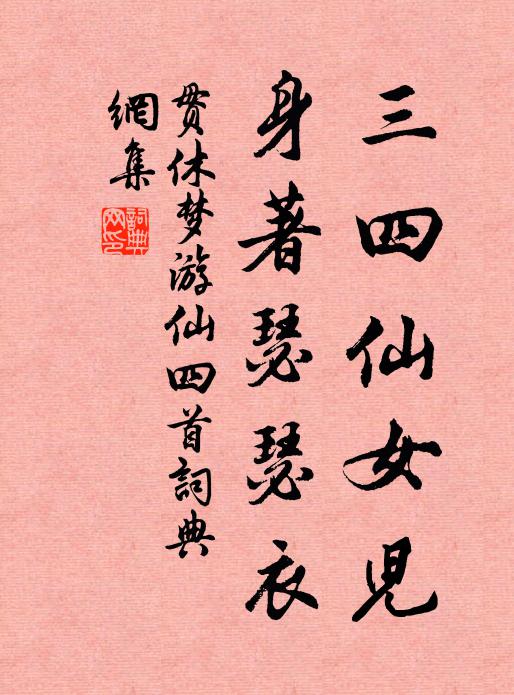 三四仙女兒
身著瑟瑟衣
贯休梦游仙四首詞典
網集
詞典网印